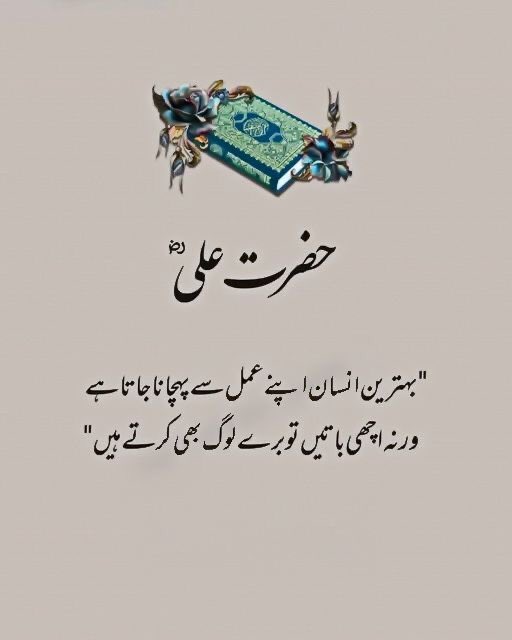 حضرت علیؓ
"بہترین انسان اپنے عمل سے پہچانا جاتا ہے
ورنہ اچھی باتیں تو برے لوگ بھی کرتے ہیں"